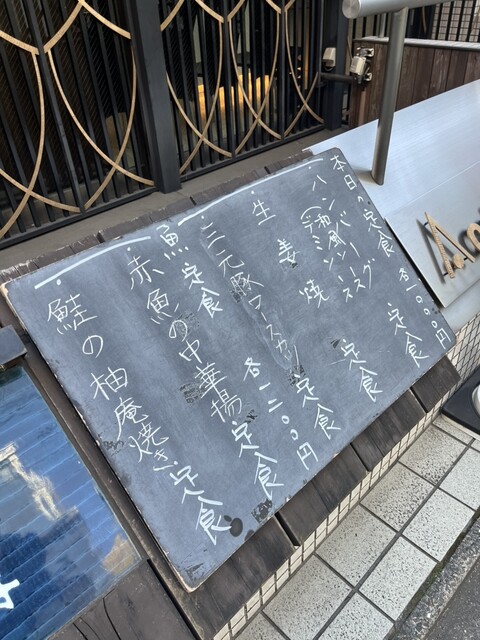 本日の定食 各一〇〇〇円
・ハンバーグ定食
・生姜焼 定食
・三元豚ロースカツ定食
魚定食 各一二〇〇円
・赤魚の中華揚定食
・鮭の柚庵焼き定食